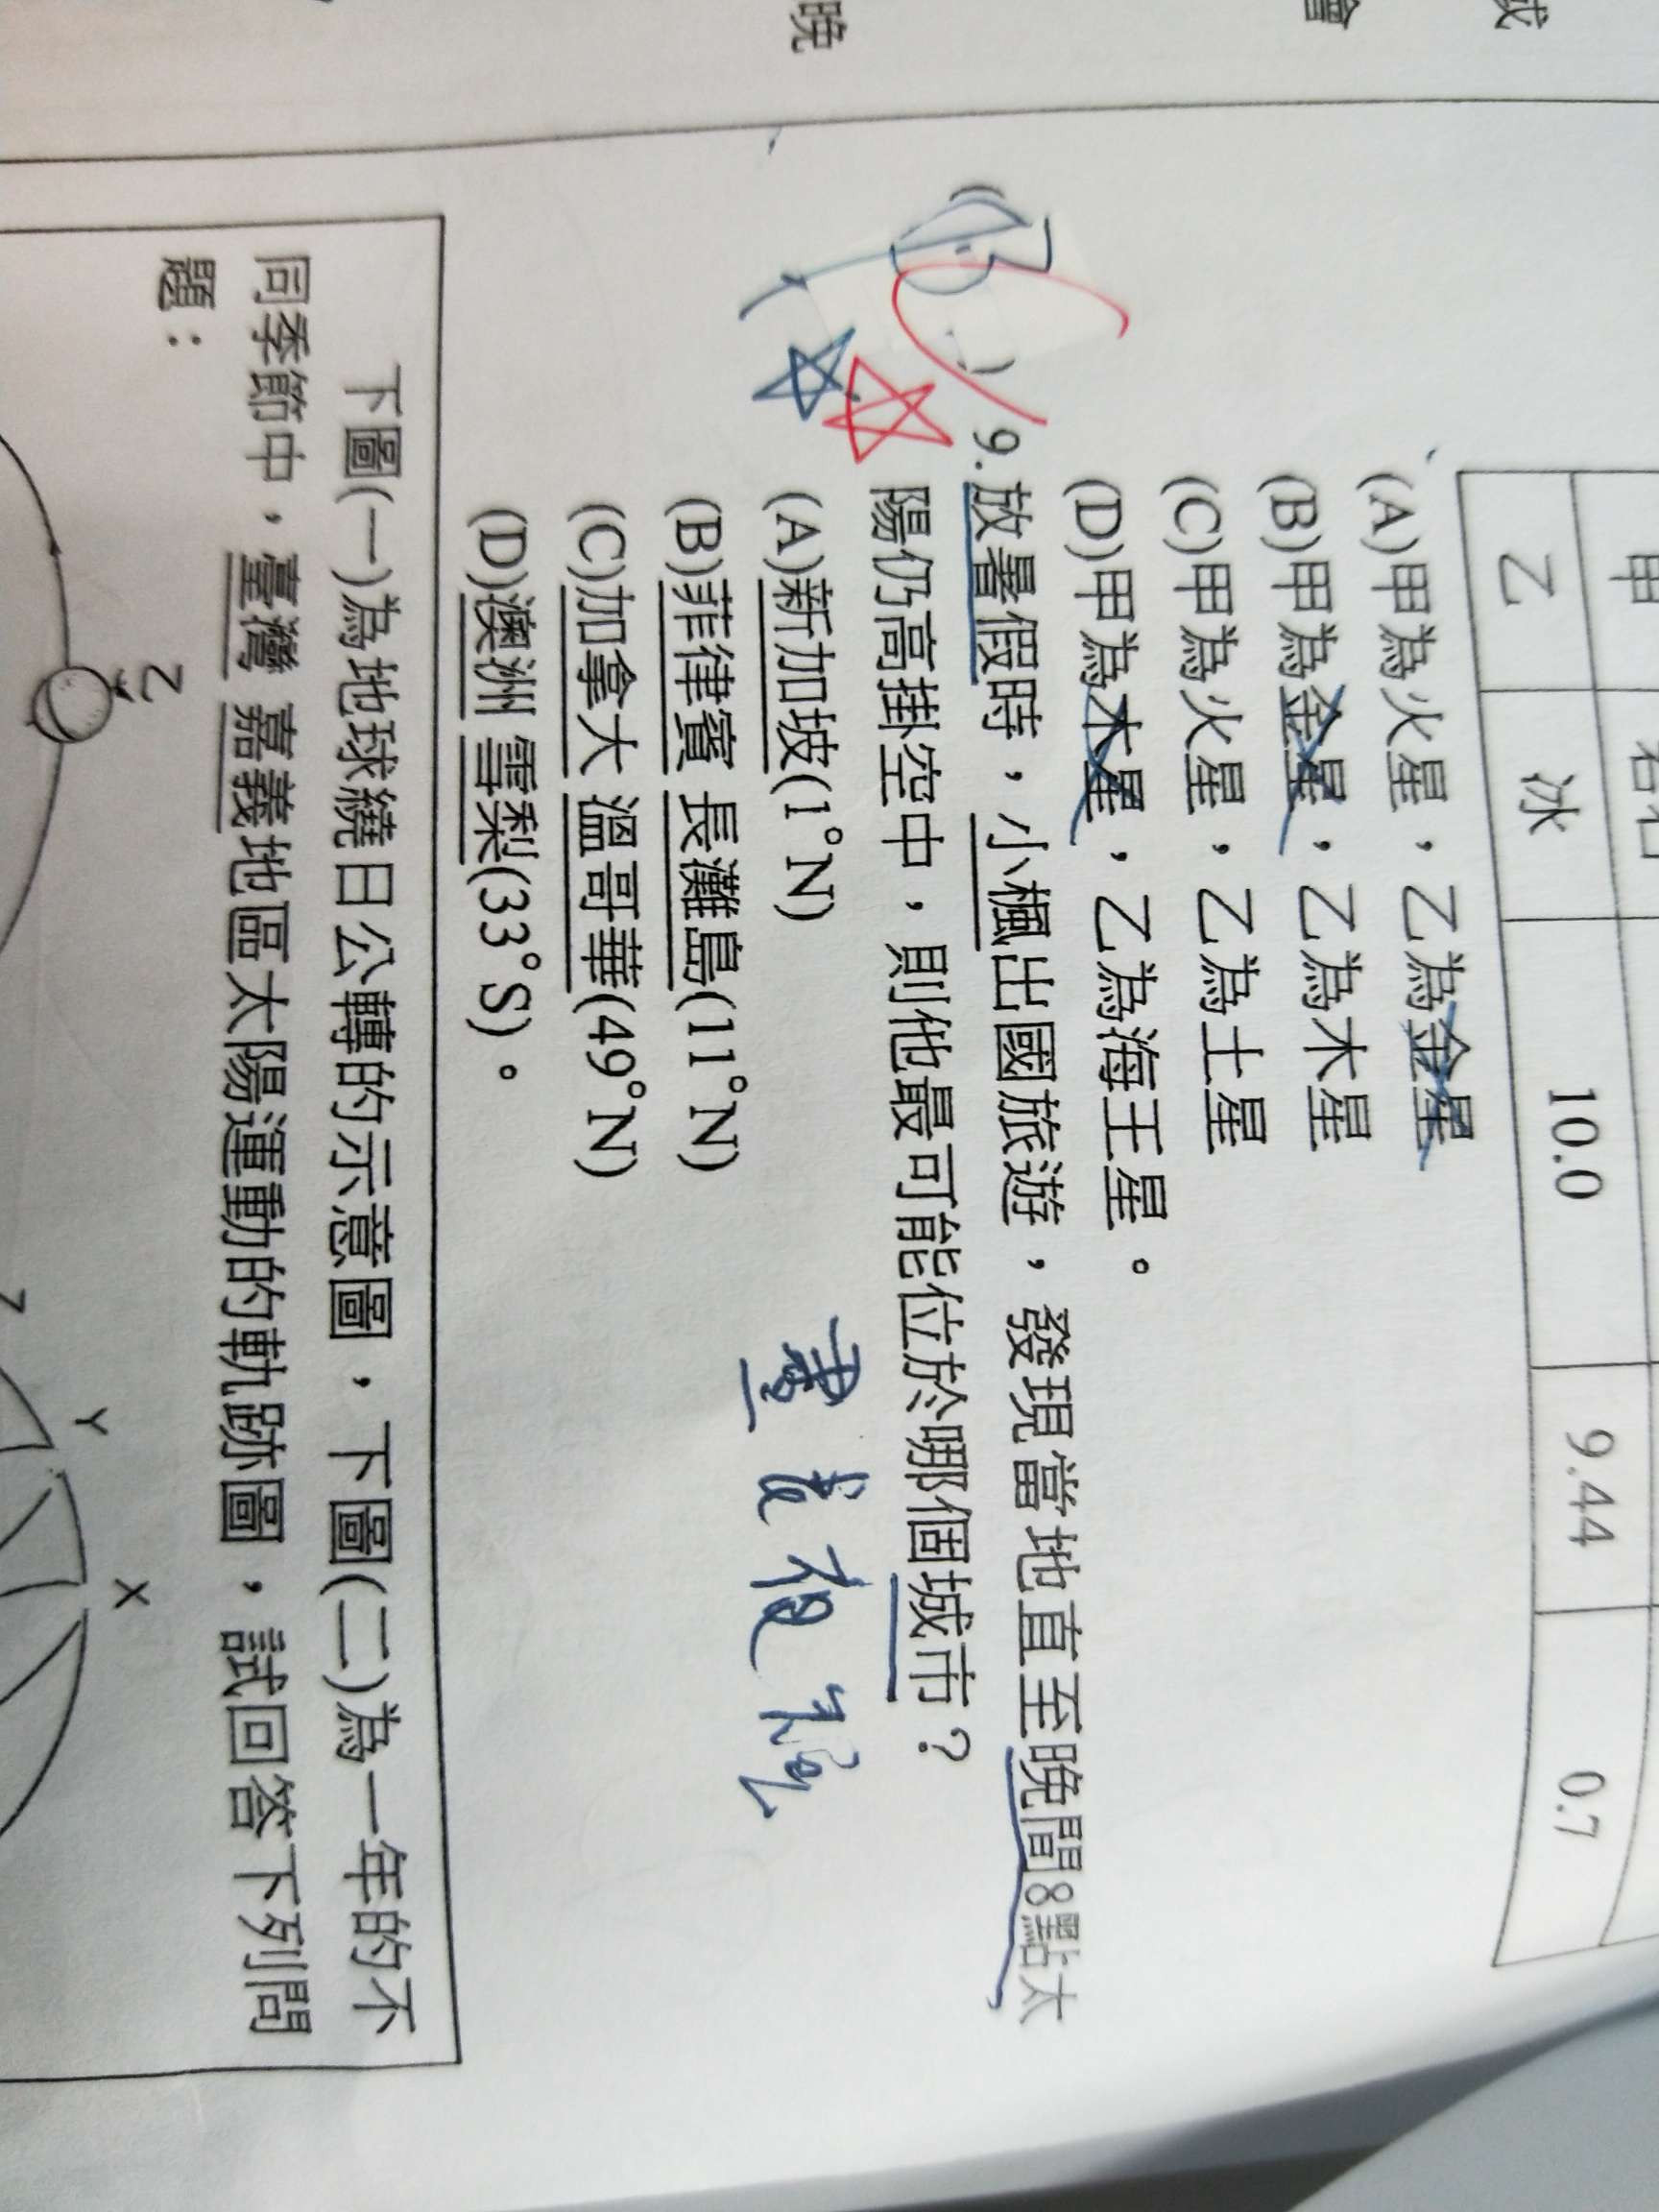 乙 冰 10.0 9.44 0.7
(A)甲為火星，乙為金星
(B)甲為金星，乙為木星
(C)甲為火星，乙為土星
(D)甲為木星，乙為海王星。
9.放暑假時，小楓出國旅遊，發現當地直至晚間8點太
陽仍高掛空中，則他最可能位於哪個城市？
(A)新加坡(1°N)
(B)菲律賓 長灘島(11°N)
(C)加拿大 溫哥華(49°N)
(D)澳洲 雪梨(33°S)。
晚
下圖(一)為地球繞日公轉的示意圖，下圖(二)為一年的不
同季節中，臺灣 嘉義地區太陽運動的軌跡圖，試回答下列問
題：
Z
Y
X